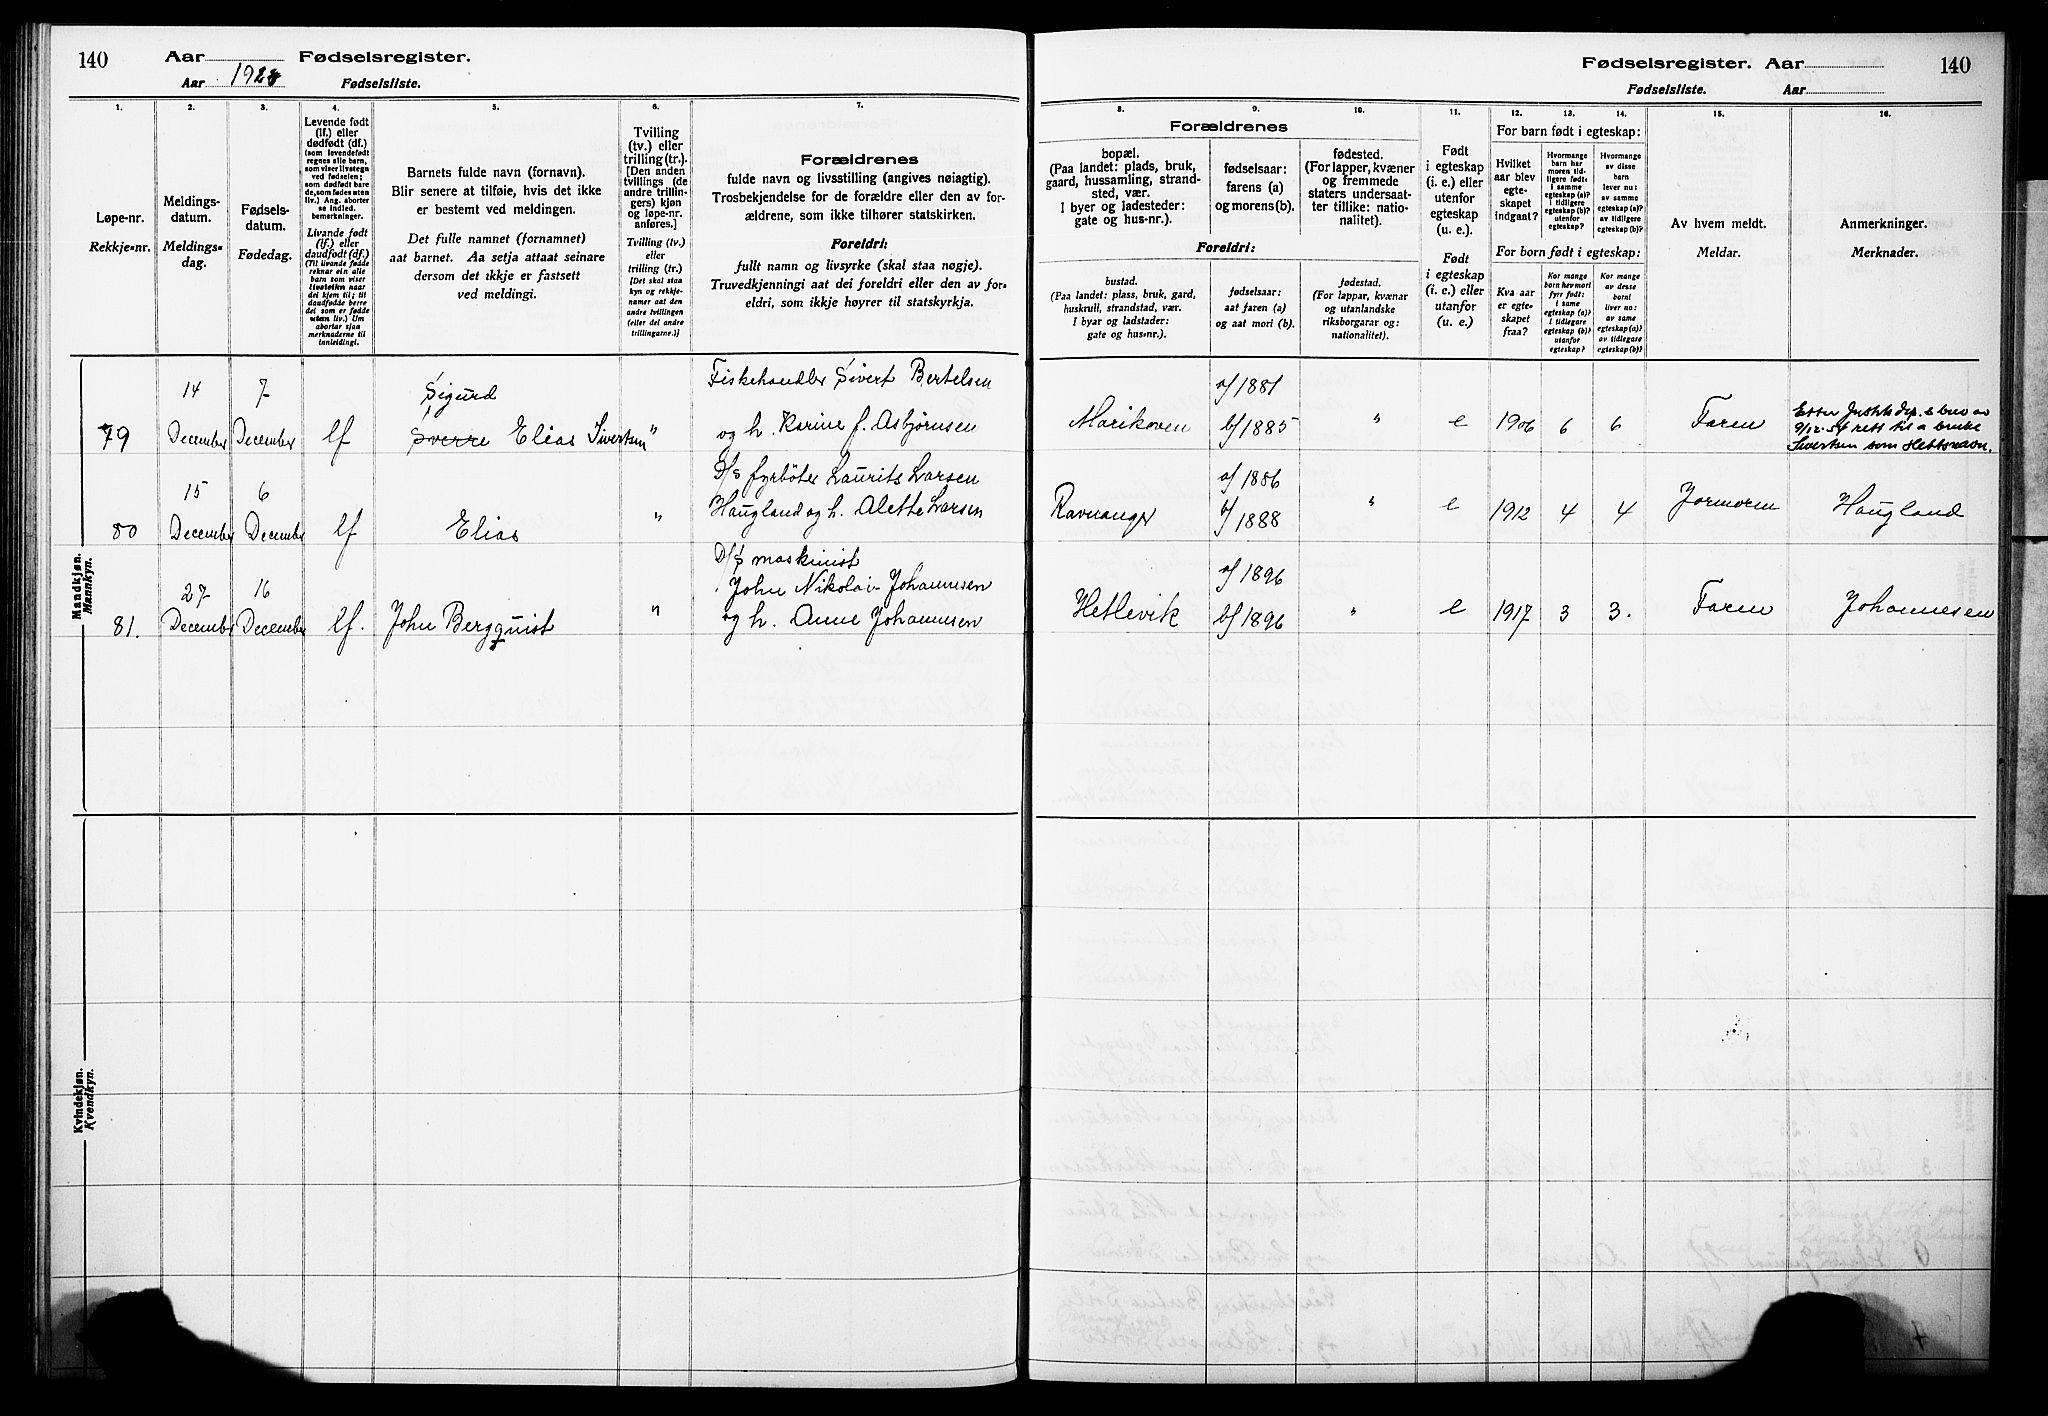 140
Aar
Fødselsregister.
Aar 1923
Fødselsliste.
Fødselsregister. Aar
140
Fødselsliste. Aar
1.
2.
3.
4.
5.
6.
7.
8.
9.
10.
11.
12.
13.
14.
15.
16.
Løpe-nr.
Rekkje-nr.
Meldings-
datum.
Meldings-
dag.
Fødsels-
datum.
Fødedag.
Levende født
(lf.) eller
dødfødt (df.)
(som levendefødt
regnes alle barn,
som viser livstegn
ved fødselen;
som dødfødt bare
de, som fødes uten
liv.) Ang. aborter
se indled.
bemerkninger.
Livande født
(lf.) eller
daudfødt (df.)
(Til livande fødde
reknar ein alle
barn som viser
livsteikn naar
dei kjem til; til
daudfødde berre
dei som er fødde
uten liv.) Um
abortar sjaa
merknaderne til
innleidingi.
Barnets fulde navn (fornavn).
Blir senere at tilføie, hvis det ikke
er bestemt ved meldingen.
Det fulle namnet (fornamnet)
aat barnet. Aa setja attaat seinare
dersom det ikkje er fastsett
ved meldingi.
Tvilling
(tv.) eller
trilling (tr.).
[Den anden
tvillings (de
andre trillin-
gers) kjøn
og løpe-nr.
anføres.]
Tvilling (tv.)
eller
trilling (tr.)
[Det skal staa
kyn og rekkje-
numer aat den
andre tvillingen
(eller dei andre
trillingarne.)]
Forældrenes
fulde navn og livsstilling (angives nøiagtig).
Trosbekjendelse for de forældre eller den av for-
ældrene, som ikke tilhører statskirken.
Foreldri:
fullt namn og livsyrke (skal staa nøgje).
Truvedkjenningi aat dei foreldri eller den av for-
eldri, som ikkje høyrer til statskyrkja.
Forældrenes
bopæl.
(Paa landet: plads, bruk,
gaard, hussamling, strand-
sted, vær.
I byer og ladesteder:
gate og hus-nr.).
fødselsaar:
farens (a)
og morens (b).
fødested.
(For lapper, kvæner
og fremmede
staters undersaat-
ter tillike: natio-
nalitet).
Foreldri:
bustad.
(Paa landet: plass, bruk, gard,
huskrull, strandstad, vær.
I byar og ladstader:
gate og hus-nr.).
fødselsaar:
aat faren (a)
og aat mori (b).
fødestad.
(For lappar, kvænar
og utanlandske
riksborgarar og:
nationalitet).
Født
i egteskap
(i. e.) eller
utenfor
egteskap
(u. e.).
Født
i egteskap
(i. e.) eller
utanfor
(u. e.).
For barn født i egteskap:
Hvilket
aar blev
egte-
skapet
indgaat?
Hvormange
barn har
moren tid-
ligere født:
i samme
egteskap (a)?
i tidligere
egteskap (b)?
utenfor
egteskap?
Hvormange
av disse
barn
lever nu:
av samme
egteskap (a)?
av tidligere
egteskap (b)?
For born født i egteskap:
Kva aar
er egte-
skapet
fraa?
Kor mange
born hev mori
fyrr født:
i same
egteskap (a)?
i tidlegare
egteskap (b)?
utanfor
egteskap?
Kor mange
av desse
borni
liver no:
av same
egteskap (a)?
av tidlegare
egteskap (b)?
Av hvem meldt.
Meldar.
Anmerkninger.
Merknader.
Mandkjøn.
Mannkyn.
79
14
December
7
December
lf
Sigurd
Sverre Elias Sivertsen
"
Fiskehandler Sivert Bertelsen
og h. Karine f. Asbjørnsen
Marikoven
a/1881
b/1885
"
e
1906
6
6
Faren
Etter Justitsdep.s brev av
9/12-54 rett til å bruke
Sivertsen som slektsnavn.
80
15
December
6
December
lf
Elias
"
D/s fyrbøter Laurits Larsen
Haugland og h. Alette Larsen
Ravnanger
a/1886
b/1888
"
e
1912
4
4
Jormoren
Haugland
81.
27
December
16
December
lf.
John Bergquist
"
D/s maskinist
John Nikolai Johannesen
og h. Anne Johannesen
Hetlevik
a/1896
b/1896
"
e
1917
3
3.
Faren
Johannesen
Kvindekjøn.
Kvendkyn.